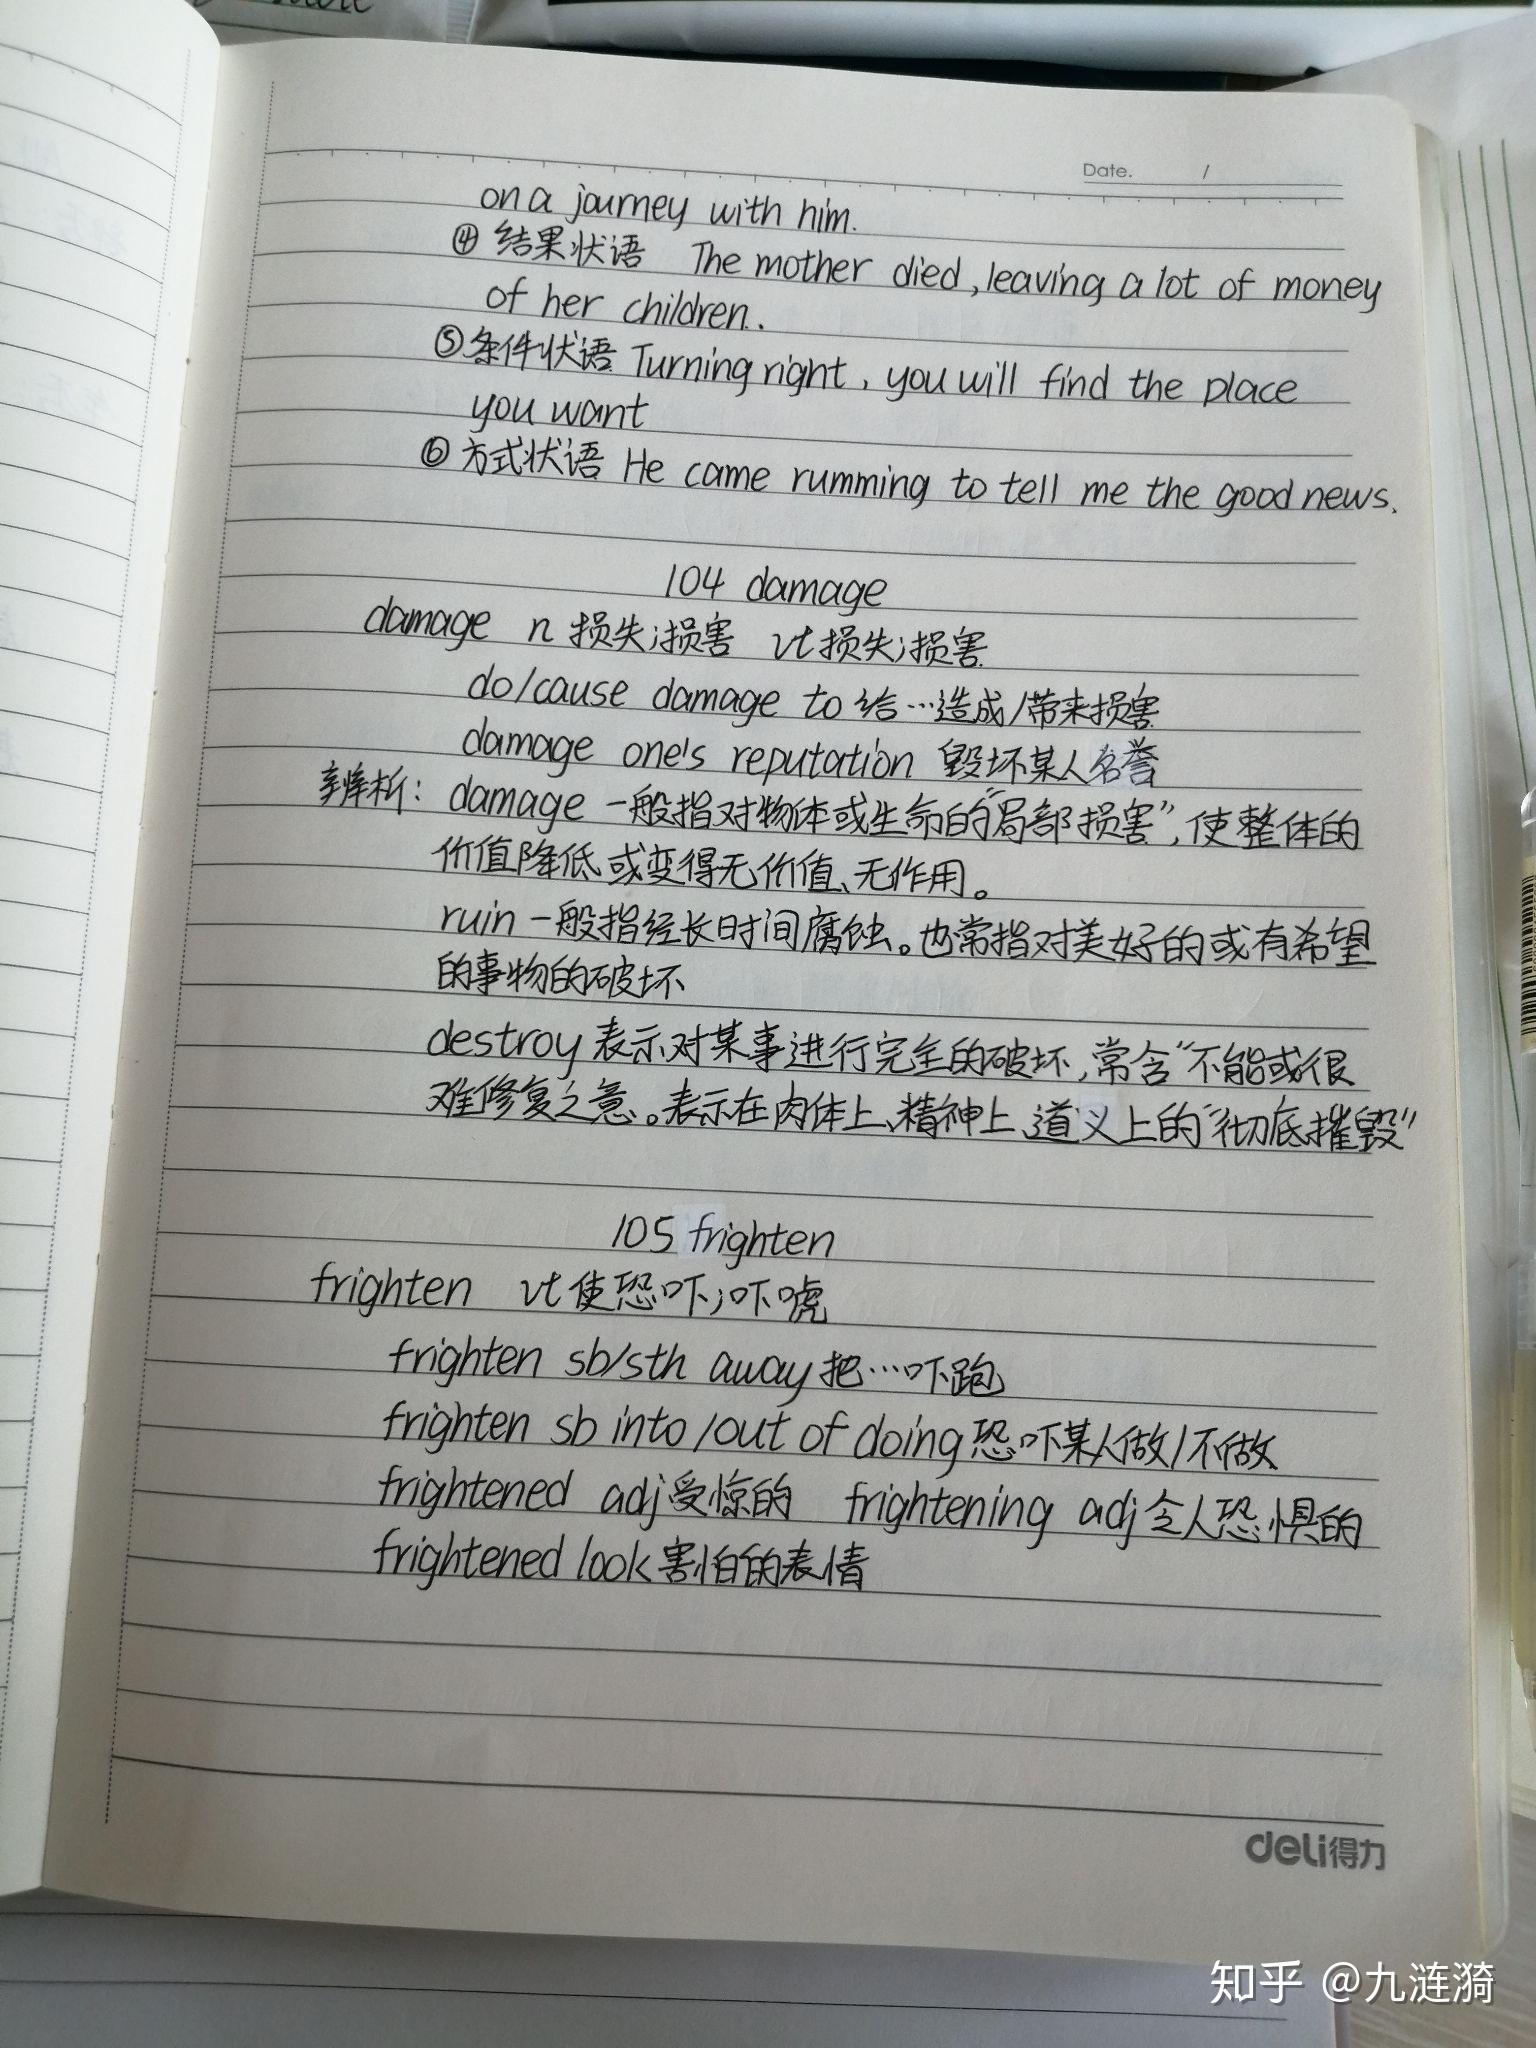 Date. /
on a journey with him.
④ 结果状语 The mother died, leaving a lot of money
of her children.
⑤条件状语 Turning right, you will find the place
you want
⑥ 方式状语 He came rumming to tell me the good news.
104 damage
damage n 损失;损害 vt 损失;损害
do/cause damage to 给…造成/带来损害
damage one's reputation 毁坏某人名誉
辨析: damage 一般指对物体或生命的"局部损害",使整体的
价值降低或变得无价值、无作用。
ruin 一般指经长时间腐蚀。也常指对美好的或有希望
的事物的破坏
destroy 表示对某事进行完全的破坏,常含"不能或很
难修复之意。表示在肉体上、精神上、道义上的"彻底摧毁"
105 frighten
frighten vt 使恐吓;吓唬
frighten sb/sth away 把…吓跑
frighten sb into/out of doing 恐吓某人做/不做
frightened adj 受惊的 frightening adj 令人恐惧的
frightened look 害怕的表情
deli得力
知乎 @九涟漪